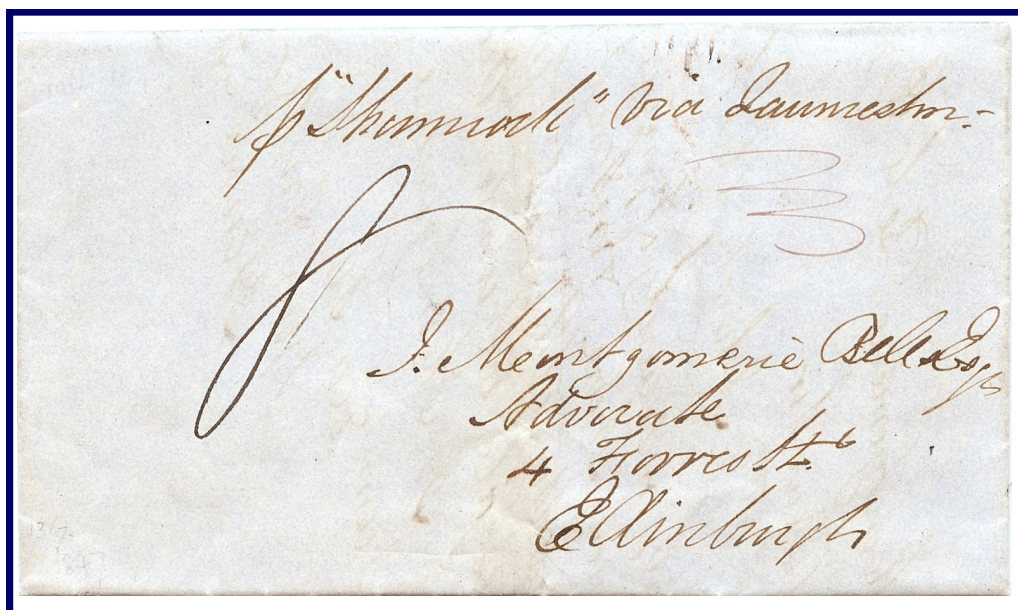 p "Shamrock" via Launceston -
8
3
J. Montgomerie Bell Esqr
Advocate
4 Forres St.
Edinburgh
13/7
1847